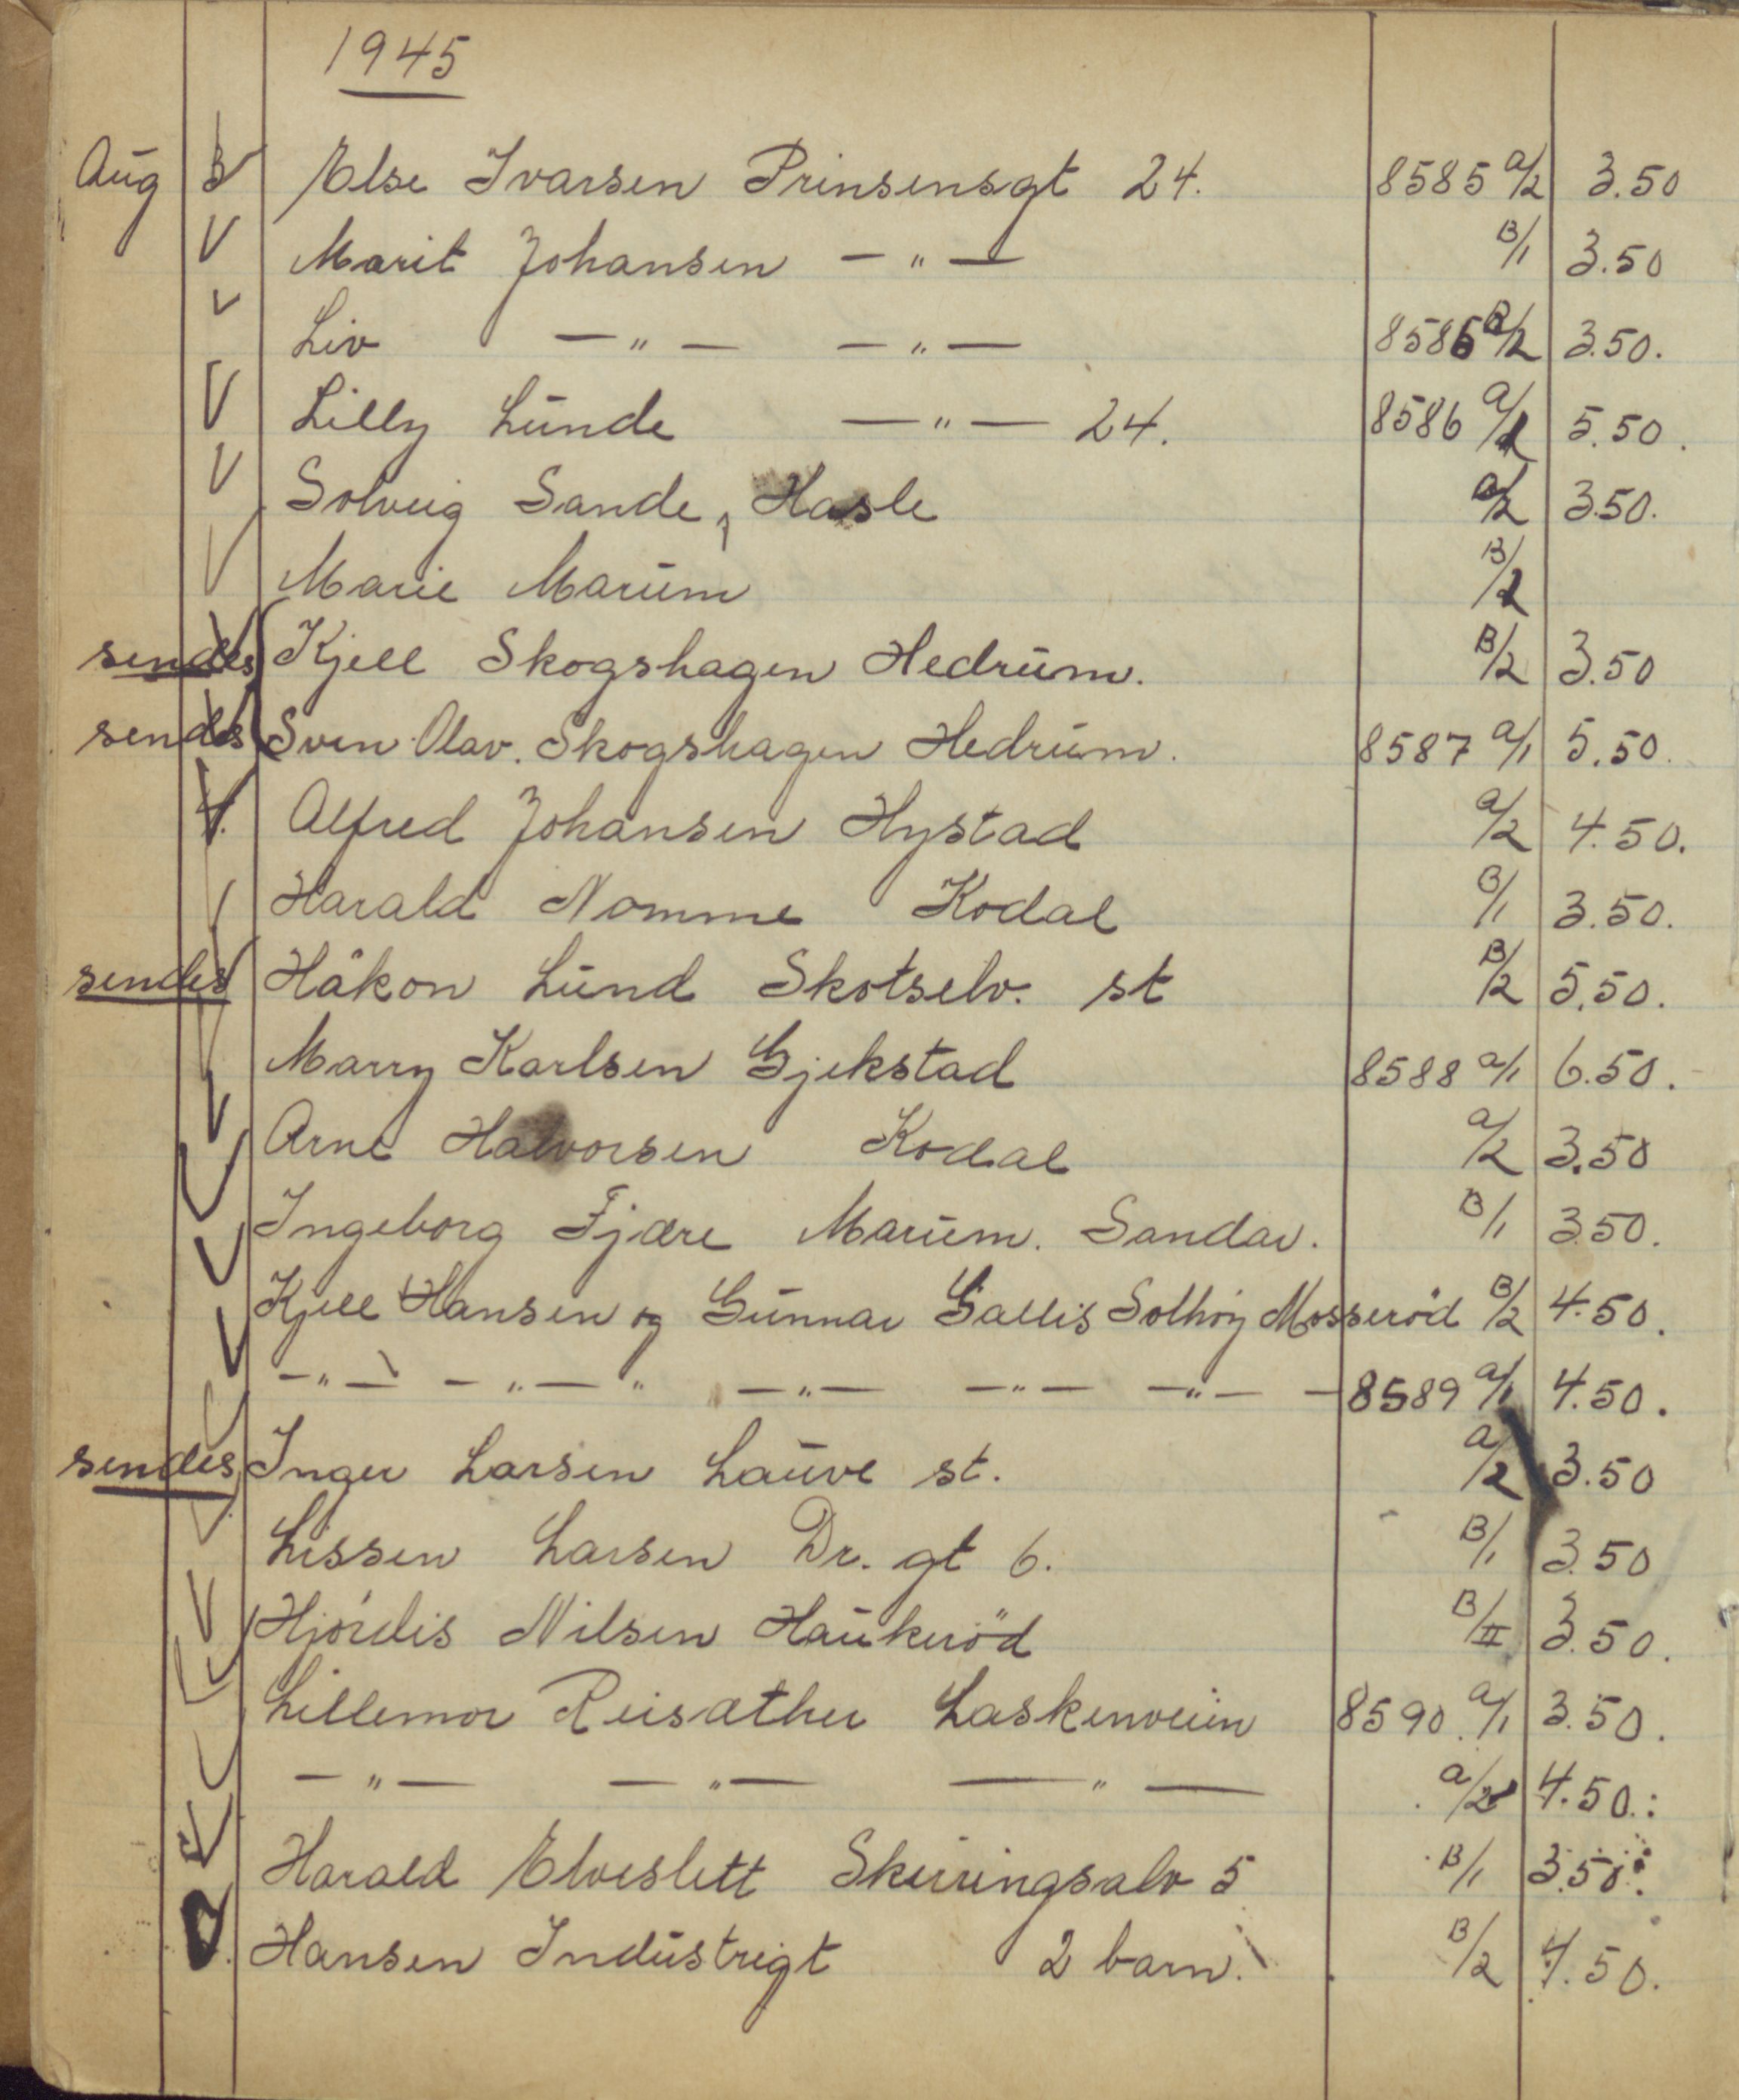 1945
Aug 3 Else Ivarsen Prinsensgt 24. 8585 a/2 3.50
Marit Johansen — " — B/1 3.50
Liv — " — — " — 8585 B/2 3.50.
Lilly Lunde — " — 24. 8586 a/1 5.50.
Solveig Sande, Hasle a/2 3.50.
Marie Marum B/2
sendes Kjell Skogshagen Hedrum. B/2 3.50
sendes Sven Olav. Skogshagen Hedrum. 8587 a/1 5.50.
4. Alfred Johansen Hystad a/2 4.50.
Harald Nomme Kodal B/1 3.50.
sendes Håkon Lund Skotselv. st B/2 5.50.
Marry Karlsen Gjekstad 8588 a/1 6.50.
Arne Halvorsen Kodal a/2 3.50
Ingeborg Fjære Marum. Sandar. B/1 3.50.
Kjell Hansen og Gunnar Gallis Solhøy Mosseröd B/2 4.50.
— " — — " — " — " — — " — — " — — 8589 a/1 4.50.
sendes Inger Larsen Lauve st. a/2 3.50
Lissen Larsen Dr. gt 6. B/1 3.50
Hjördis Nilsen Haukeröd B/II 3.50.
Lillemor Reisæther Laskenveien 8590. a/1 3.50.
— " — — " — — " — a/2 4.50.
Harald Elveslett Skiringsalv 5 B/1 3.50.
Hansen Industrigt 2 barn. B/2 4.50.